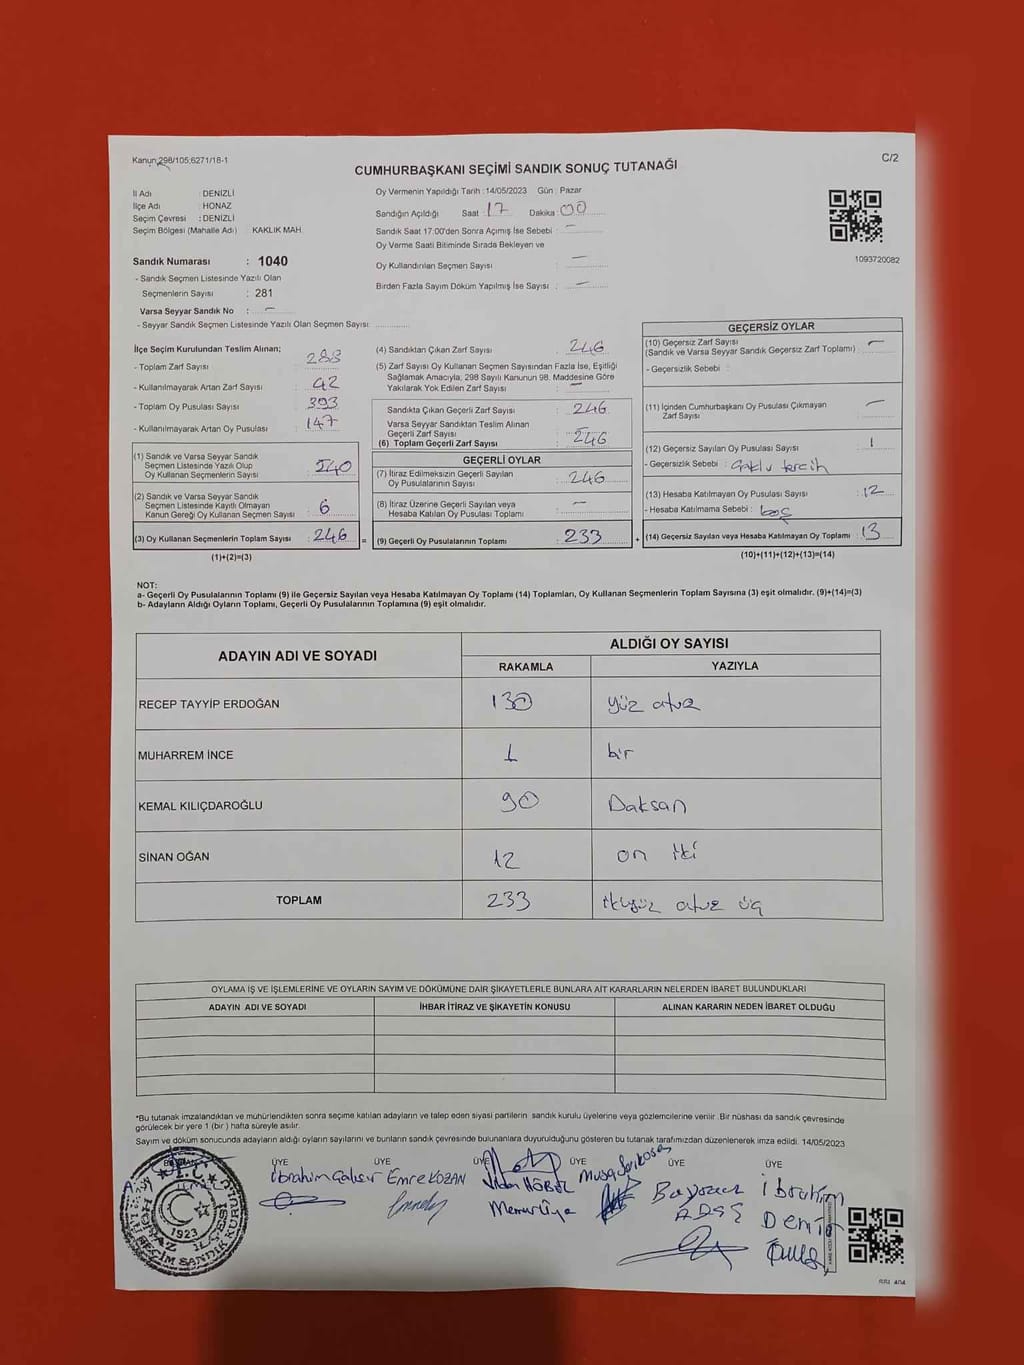 Kanun 298/105;6271/18-1
C/2
CUMHURBAŞKANI SEÇİMİ SANDIK SONUÇ TUTANAĞI
İl Adı : DENİZLİ
İlçe Adı : HONAZ
Seçim Çevresi : DENİZLİ
Seçim Bölgesi (Mahalle Adı) : KAKLIK MAH.
Sandık Numarası : 1040
- Sandık Seçmen Listesinde Yazılı Olan
Seçmenlerin Sayısı : 281
Varsa Seyyar Sandık No : –
- Seyyar Sandık Seçmen Listesinde Yazılı Olan Seçmen Sayısı
Oy Vermenin Yapıldığı Tarih : 14/05/2023 Gün : Pazar
Sandığın Açıldığı Saat : 17 Dakika : 00
Sandık Saat 17:00'den Sonra Açımış İse Sebebi : –
Oy Verme Saati Bitiminde Sırada Bekleyen ve
Oy Kullandırılan Seçmen Sayısı : –
Birden Fazla Sayım Döküm Yapılmış İse Sayısı : –
1093720082
İlçe Seçim Kurulundan Teslim Alınan;
- Toplam Zarf Sayısı : 288
- Kullanılmayarak Artan Zarf Sayısı : 42
- Toplam Oy Pusulası Sayısı : 393
- Kullanılmayarak Artan Oy Pusulası : 147
(1) Sandık ve Varsa Seyyar Sandık
Seçmen Listesinde Yazılı Olup
Oy Kullanan Seçmenlerin Sayısı : 240
(2) Sandık ve Varsa Seyyar Sandık
Seçmen Listesinde Kayıtlı Olmayan
Kanun Gereği Oy Kullanan Seçmen Sayısı : 6
(3) Oy Kullanan Seçmenlerin Toplam Sayısı : 246
(1)+(2)=(3)
(4) Sandıktan Çıkan Zarf Sayısı : 246
(5) Zarf Sayısı Oy Kullanan Seçmen Sayısından Fazla İse, Eşitliği
Sağlamak Amacıyla, 298 Sayılı Kanunun 98. Maddesine Göre
Yakılarak Yok Edilen Zarf Sayısı : –
Sandıkta Çıkan Geçerli Zarf Sayısı : 246
Varsa Seyyar Sandıktan Teslim Alınan
Geçerli Zarf Sayısı
(6) Toplam Geçerli Zarf Sayısı : 246
GEÇERLİ OYLAR
(7) İtiraz Edilmeksizin Geçerli Sayılan
Oy Pusulalarının Sayısı : 246
(8) İtiraz Üzerine Geçerli Sayılan veya
Hesaba Katılan Oy Pusulası Toplamı : –
= (9) Geçerli Oy Pusulalarının Toplamı : 233
GEÇERSİZ OYLAR
(10) Geçersiz Zarf Sayısı : –
(Sandık ve Varsa Seyyar Sandık Geçersiz Zarf Toplamı)
- Geçersizlik Sebebi :
(11) İçinden Cumhurbaşkanı Oy Pusulası Çıkmayan
Zarf Sayısı : –
(12) Geçersiz Sayılan Oy Pusulası Sayısı : 1
- Geçersizlik Sebebi : çoklu tercih
(13) Hesaba Katılmayan Oy Pusulası Sayısı : 12
- Hesaba Katılmama Sebebi : boş
+ (14) Geçersiz Sayılan veya Hesaba Katılmayan Oy Toplamı : 13
(10)+(11)+(12)+(13)=(14)
NOT:
a- Geçerli Oy Pusulalarının Toplamı (9) ile Geçersiz Sayılan veya Hesaba Katılmayan Oy Toplamı (14) Toplamları, Oy Kullanan Seçmenlerin Toplam Sayısına (3) eşit olmalıdır. (9)+(14)=(3)
b- Adayların Aldığı Oyların Toplamı, Geçerli Oy Pusulalarının Toplamına (9) eşit olmalıdır.
ADAYIN ADI VE SOYADI
ALDIĞI OY SAYISI
RAKAMLA YAZIYLA
RECEP TAYYİP ERDOĞAN 130 yüz otuz
MUHARREM İNCE 1 bir
KEMAL KILIÇDAROĞLU 90 Doksan
SİNAN OĞAN 12 on iki
TOPLAM 233 ikiyüz otuz üç
OYLAMA İŞ VE İŞLEMLERİNE VE OYLARIN SAYIM VE DÖKÜMÜNE DAİR ŞİKAYETLERLE BUNLARA AİT KARARLARIN NELERDEN İBARET BULUNDUKLARI
ADAYIN ADI VE SOYADI İHBAR İTİRAZ VE ŞİKAYETİN KONUSU ALINAN KARARIN NEDEN İBARET OLDUĞU
*Bu tutanak imzalandıktan ve mühürlendikten sonra seçime katılan adayların ve talep eden siyasi partilerin sandık kurulu üyelerine veya gözlemcilerine verilir. Bir nüshası da sandık çevresinde
görülecek bir yere 1 (bir ) hafta süreyle asılır.
Sayım ve döküm sonucunda adayların aldığı oyların sayılarını ve bunların sandık çevresinde bulunanlara duyurulduğunu gösteren bu tutanak tarafımızdan düzenlenerek imza edildi. 14/05/2023
ÜYE ÜYE ÜYE ÜYE ÜYE ÜYE
Emre KOZAN
Memur Üye
İbrahim
T.C.
HONAZ İLÇESİ
1923